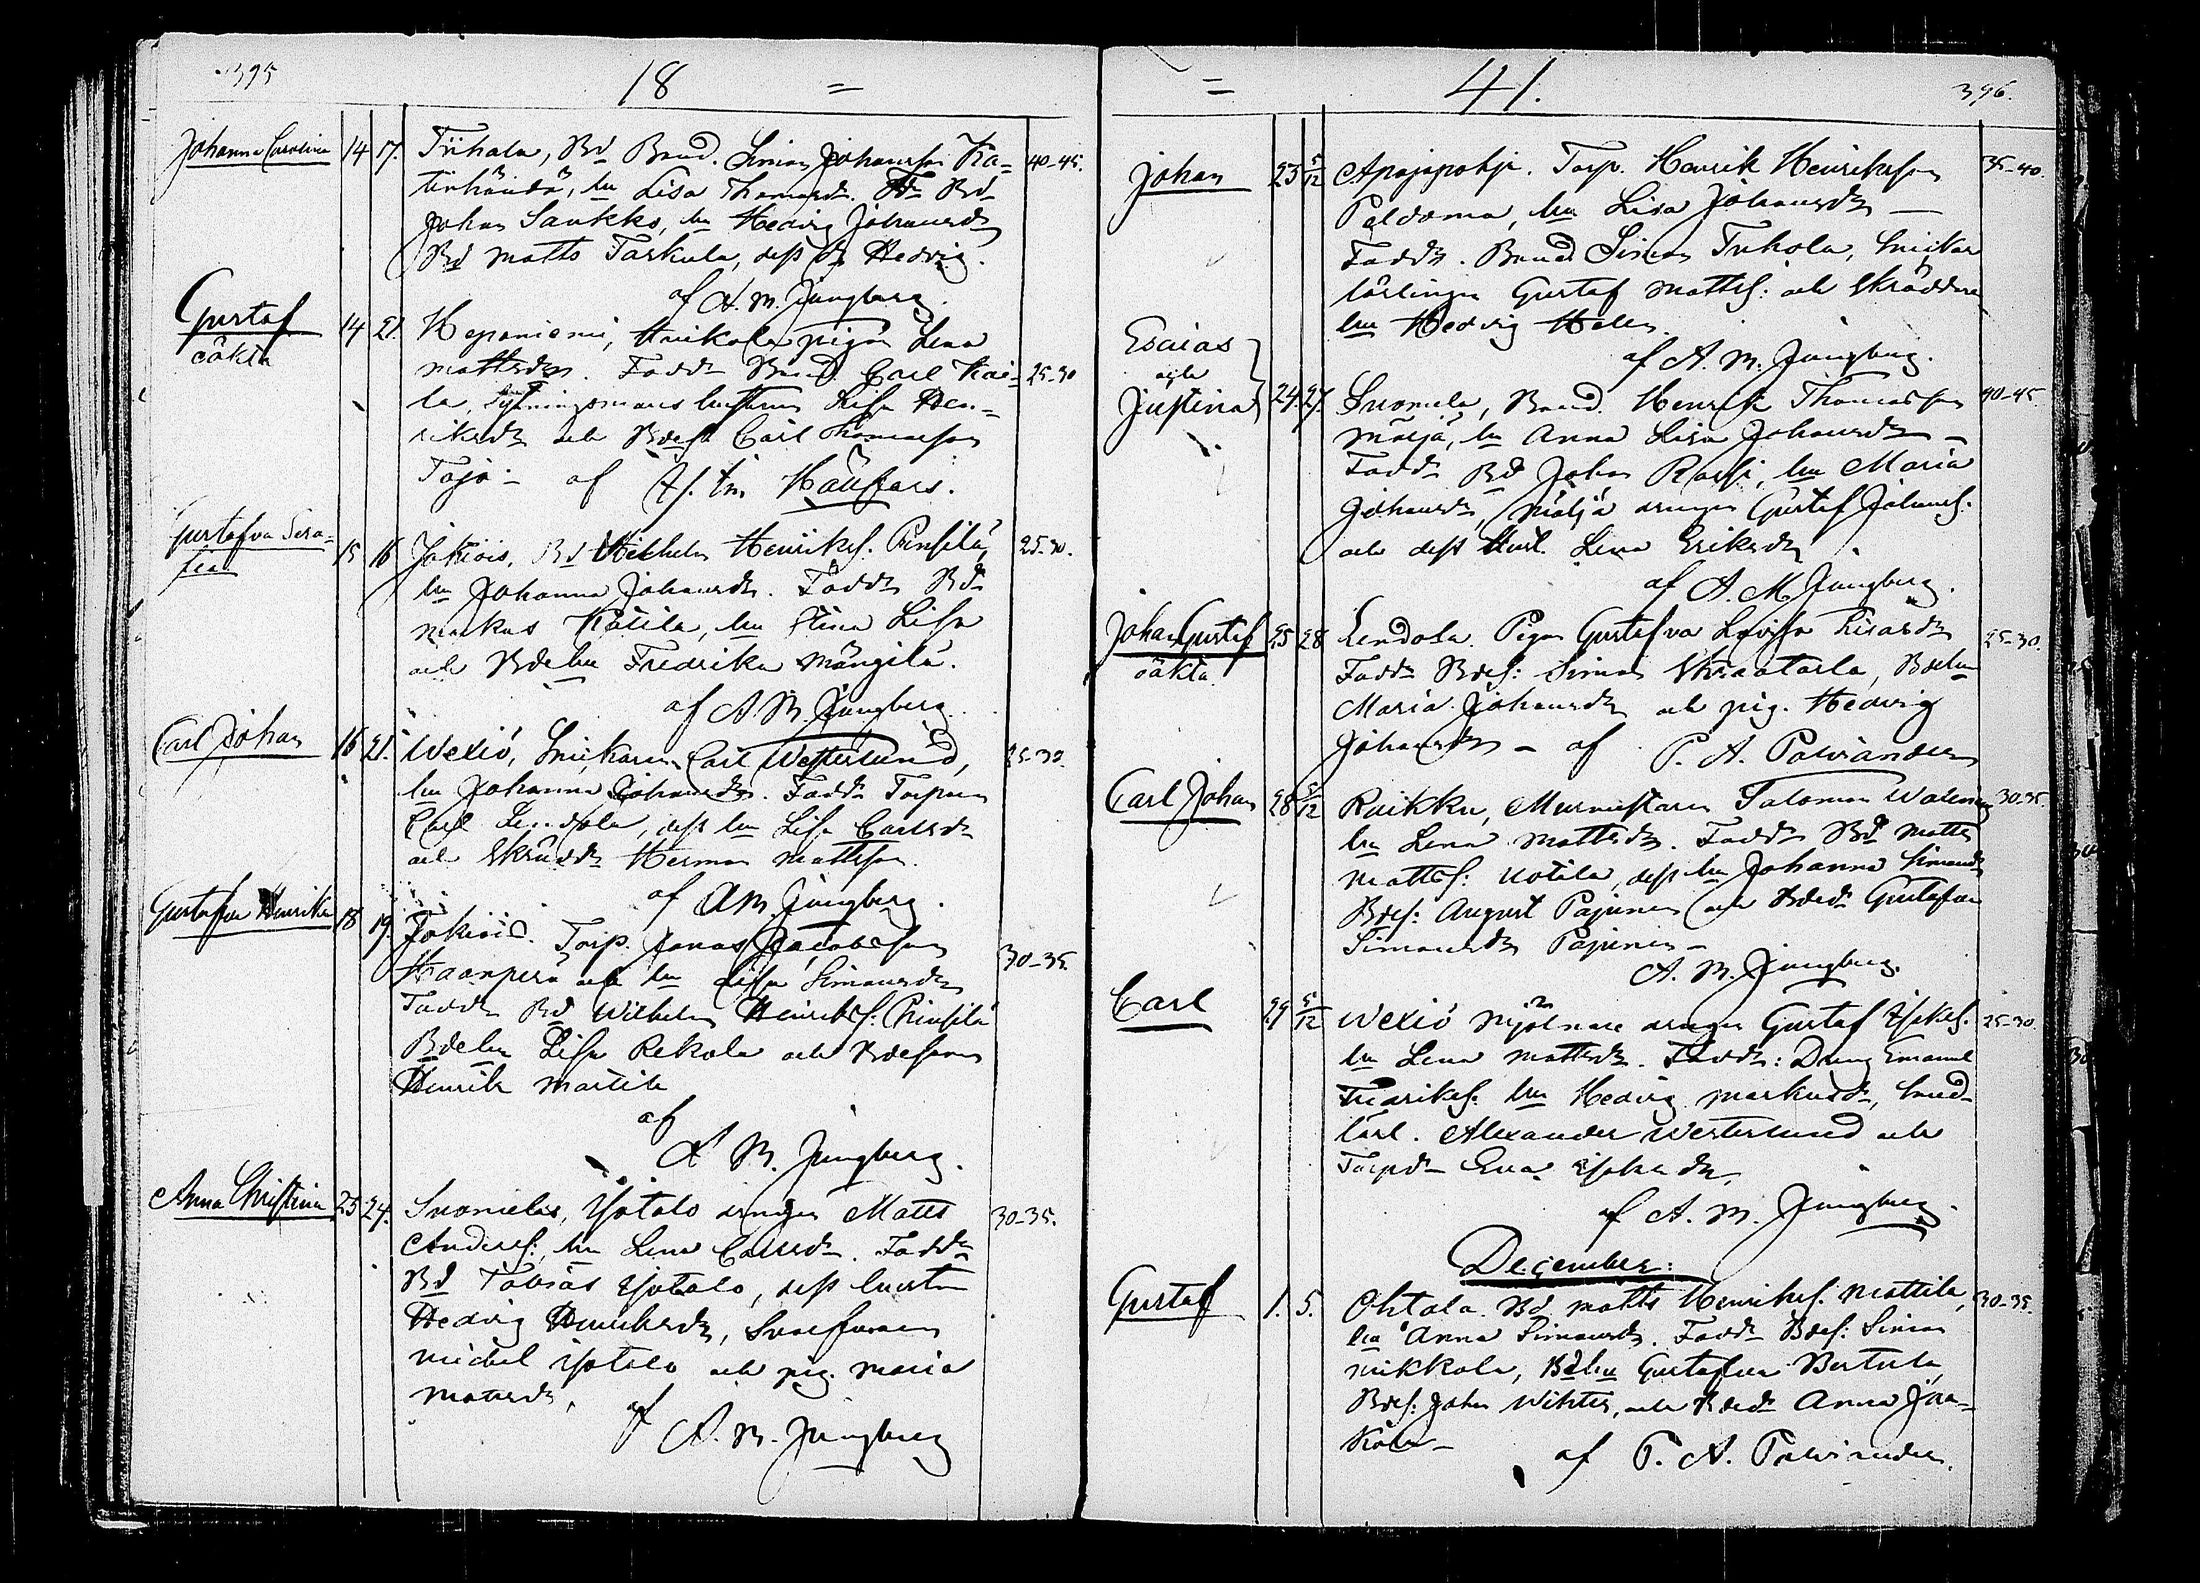 395
18 =
Johanna Carolina 14 17. Tuhala, Bd Bond. Simon Johansson Ka- 40-45.
tinhändä, hu Lisa Thomasdr. Fdr Bd
Johan Saukko, hu Hedvig Johansdr
Bd Matts Taskula, dess dr Hedvig.
af A. M. Jungberg.
Gustaf 14 21. Heponiemi, pigan Lena
oäkta Mattsdr. Faddr Bond Carl Kai- 25-30
la, hustrun Lisa Hen-
riksdr och Bdes Carl Thomasson
Tojo - af
Gustafva Sera- 15 16 Jokiois, Bd Wilhelm Henriks. Pinsilä, 25-30.
fia hu Johanna Johansdr. Faddr Bd
Markus Kotila, hu Stina Lisa
och Bdehu Fredrika Mängilä.
af A. M. Jungberg.
Carl Johan 16 21. Wexiö, Snickaren Carl Westerlund, 25-30.
hu Johanna Johansdr. Faddr Torparen
Carl Lendola, dess hu Lisa Carlsdr
och Skrädd Herman Mattsson.
af A. M. Jungberg.
Gustafva Henrika 18 19. Jokiois. Torp. Jonas Jacobsson 30-35.
Haanperä och hu Lisa Simonsdr
Faddr Bd Wilhelm Henriks: Pinsilä
Bdehu Lisa Rekola och Bdesonen
Henrik Martila
af
A. M. Jungberg.
Anna Christina 23 24. Suomela, Isotalo drängen Matts 30-35.
Anders:, hu Lena Carlsdr. Faddr
Bd Tobias Isotalo, dess hustru
Hedvig Henriksdr,
Michel Isotalo och pig. Maria
Mattsdr, af
A. M. Jungberg
= 41. 396.
Johan 23 5/12 Apajapohja. Torp. Henrik Henriksson 35-40.
Paldama, hu Lisa Johansdr —
Faddr. Bond Simon Tuhola, Snickar
lärlingen Gustaf Matts: och Skräddare
hu Hedvig Helen.
af A. M. Jungberg.
Esaias
och
Justina 24. 27. Suomela, Bond. Henrik Thomasson 40-45.
Mäljä, hu Anna Lisa Johansdr —
Faddr Bd Johan Rassi, hu Maria
Johansdr, Mäljä drängen Gustaf Johans.
och dess Hust. Lena Eriksdr.
af A. M. Jungberg.
Johan Gustaf 25 28 Lendola. Pigan Gustafva Lovisa 25-30.
oäkta Faddr Bdes: Simon Skraatarla, Bdehu
Maria Johansdr och pig. Hedvig
Johansdr — af P. A. Palviander
Carl Johan 28 5/12 Ruikka, Murmästaren Salomon 30-35.
hu Lena Mattsdr. Faddr Bd Matts
Matts: Uotila, dess hu Johanna Simonsdr
Bdes: August Pajunen och Bdedr Gustafva
Simonsdr Pajunen —
A. M. Jungberg.
Carl 29 5/12 Wexiö Mjölnare drängen Gustaf Isaks. 25-30.
hu Lena Mattsdr. Faddr: Dräng Emanuel
Fredriks. hu Hedvig Markusdr, Smed-
lärl. Alexander Westerlund och
Torpdr Eva Isaksdr,
af A. M. Jungberg.
December:
Gustaf 1. 5. Ohtala Bd Matts Henriks. Mattila, 30-35.
hu Anna Simonsdr. Faddr Bdes: Simon
Mikkola, Bdehu Gustafva Bertula,
Bdes: Johan Wihtis, och Bdedr Anna Jaa-
kola — af P. A. Palviander.